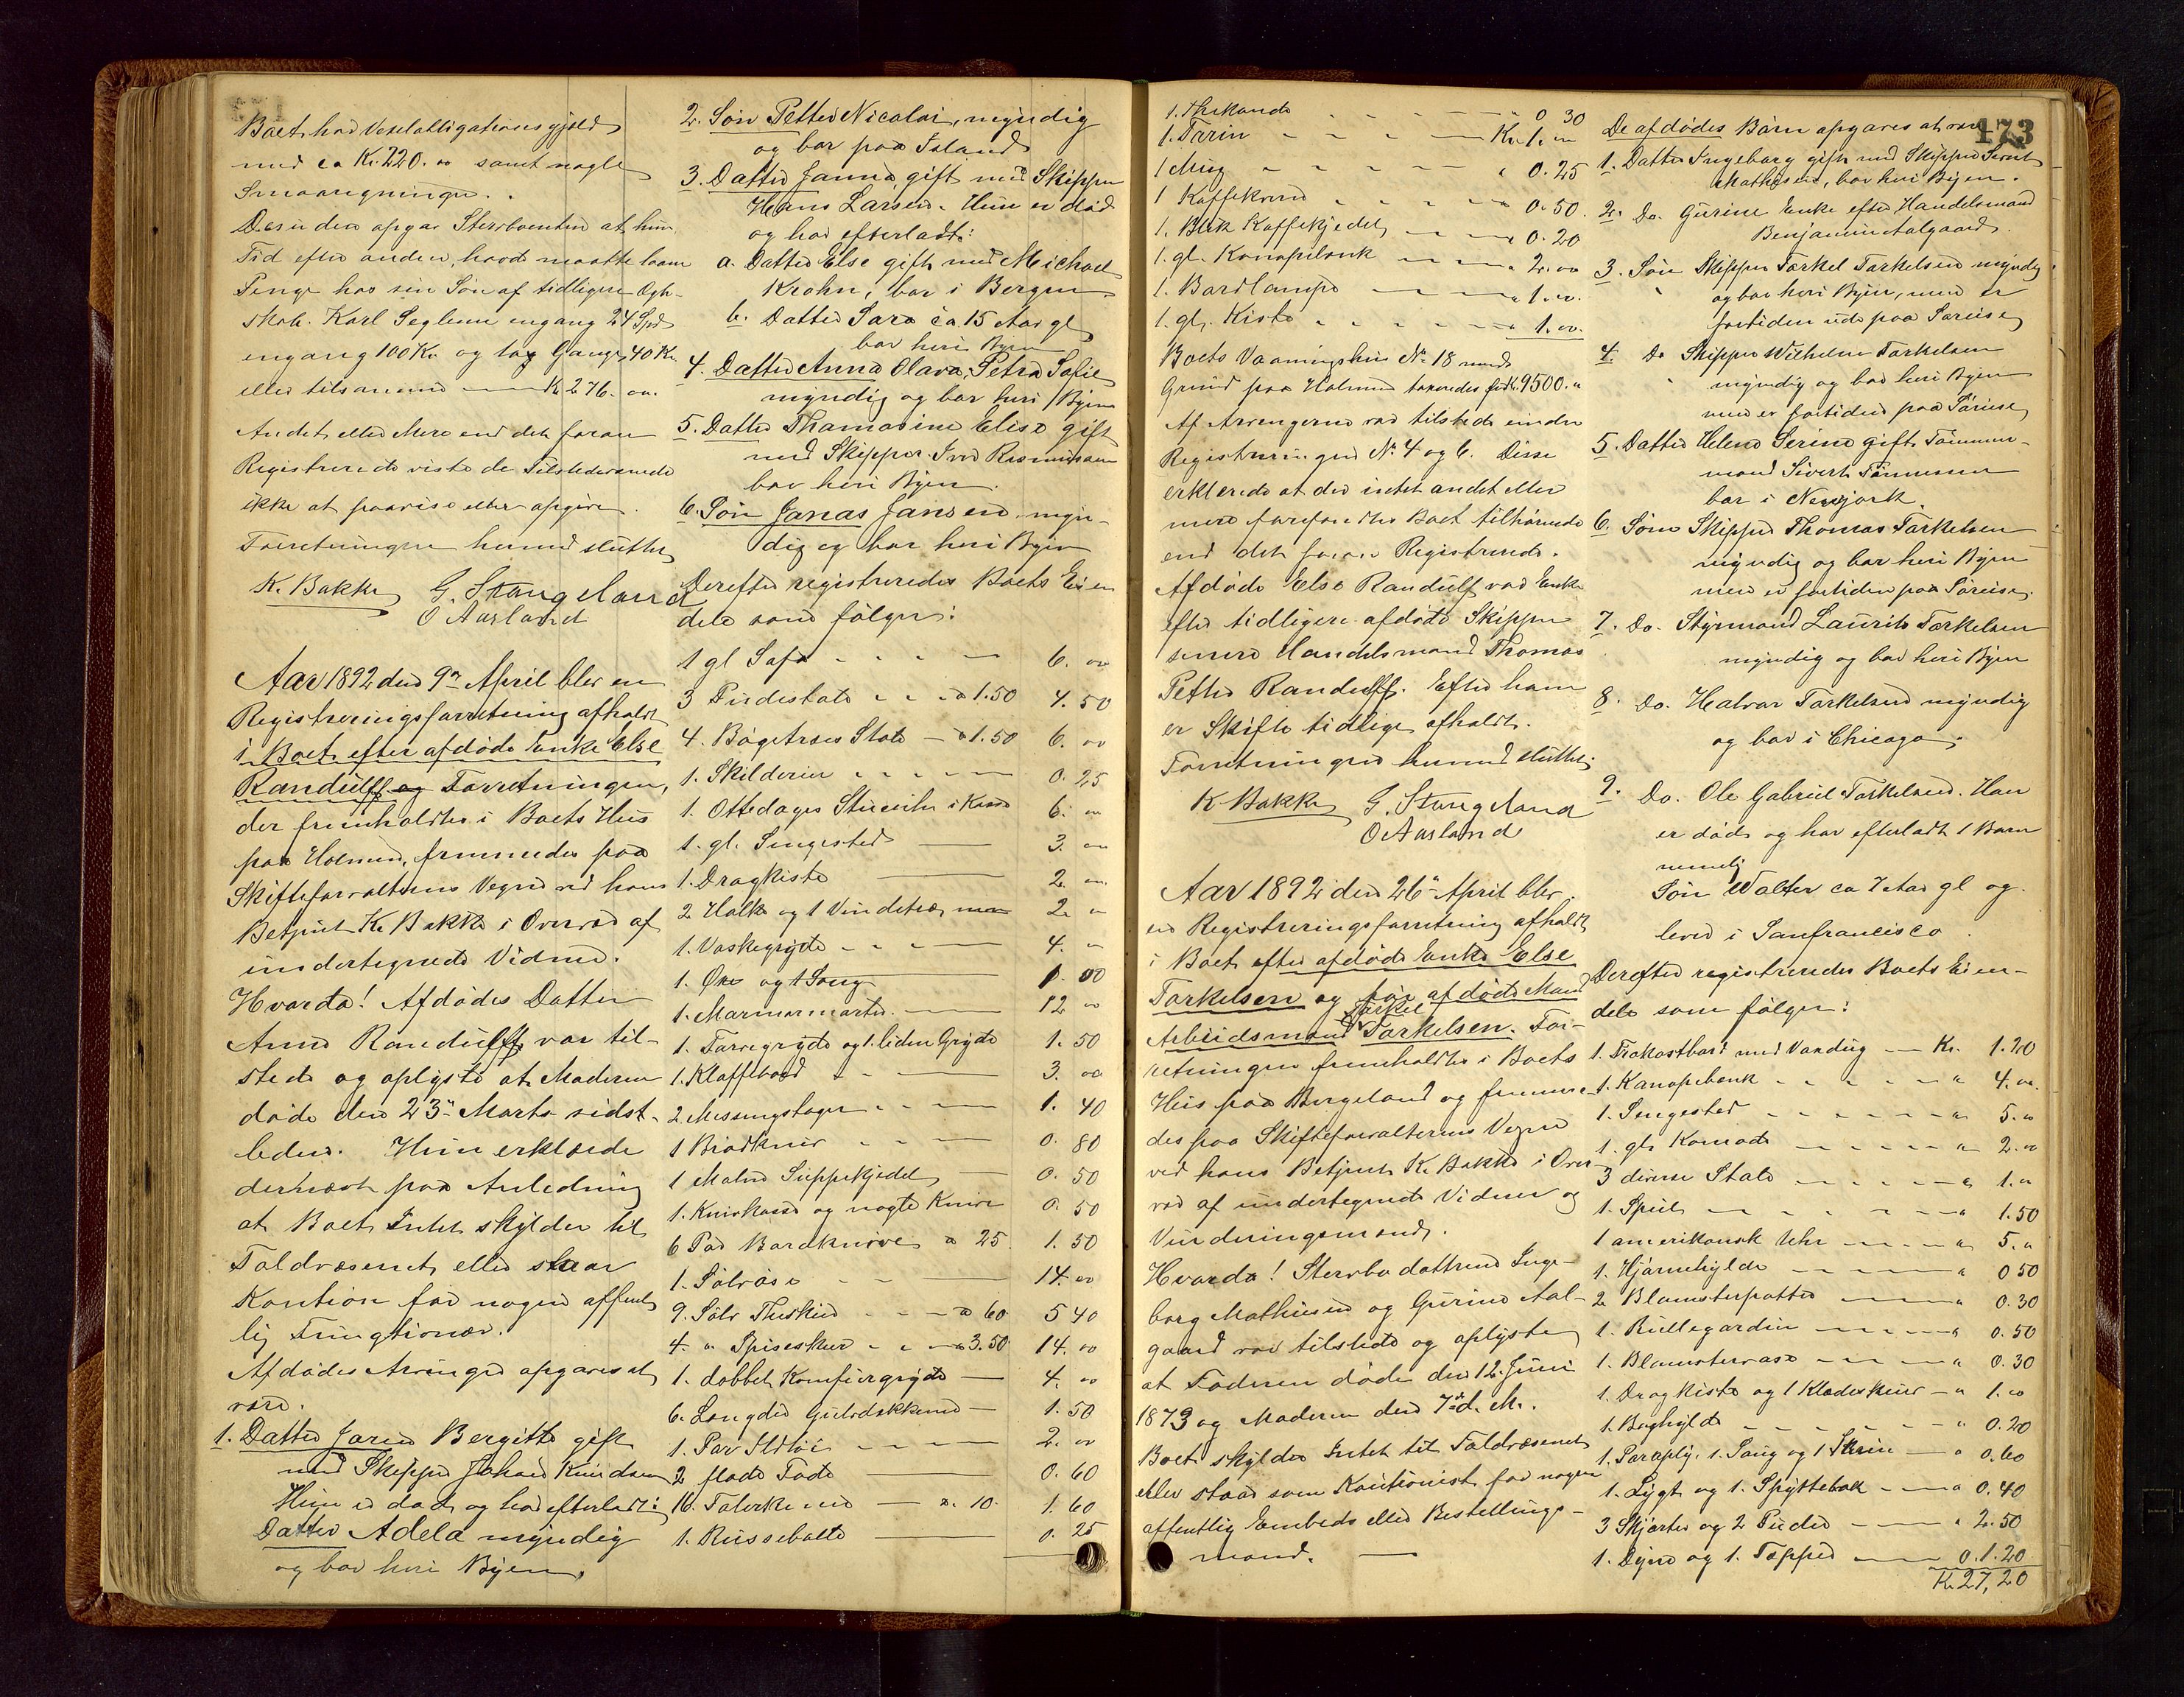 Boet har Vexelobligationsgjeld
med ca Kr. 220.00 samt nogle
Smaaregninger.
Desuden opgav Sterboenken at hun
Tid efter anden, havde maatte laane
Penge hos sin Søn af tidligere Ægte-
skab. Karl Seglem engang 24 Spd
engang 100 Kr. og to Gange 40 Kr.
eller tilsammen — Kr 276. 00.
Andet eller Mere end det foran
Registrerede vidste de Tilstedeværende
ikke at paavise eller opgive.
Forretningen hermed sluttet
K. Bakke G. Stangeland
O Aasland
Aar 1892 den 9de April blev en
Registreringsforretning afholdt
i Boet efter afdøde Enke Else
Randulff og Forretningen,
der fremholdtes i Boets Hus
paa Holmen, fremmedes paa
Skifteforvalterens Vegne ved hans
Betjent K. Bakke i Overvær af
undertegnede Vidner.
Hvorda! Afdødes Datter
Anna Randulff var til-
stede og oplyste at Moderen
døde den 23de Marts sidst-
leden. Hun erklærede
dernæst paa Anledning
at Boet Intet skylder til
Toldvæsenet eller staar
Kaution for nogen offent-
lig Fungtionær.
Afdødes Arvinger opgaves at
være.
1. Datter Jaren Bergitte gift
med Skipper Johan Knudsen
Hun er død og har efterladt:
Datter Adela myndig
og bor heri Byen.
2. Søn Petter Nicolai, myndig
og bor paa Island
3. Datter Janna, gift med Skipper
Hans Larsen. Hun er død
og har efterladt:
a. Datter Else gift med Michael
Krohn, bor i Bergen
b. Datter Sara ca 15 Aar gl
bor heri Byen
4. Datter Anna Olava, Petra Sofie
myndig og bor heri Byen
5. Datter Thomasine Elise gift
med Skipper Iver Rasmussen
bor heri Byen.
6. Søn Jonas Jansen myn-
dig og bor heri Byen
Derefter registreredes Boets Eien
dele som følger:
1 gl Sofa - - - 6. 00
3 Pindestole - - a 1.50 4. 50
4. Bøgetræs Stole — a 1.50 6. 00
1. Skilderier - - - 0. 25
1. Ottedages Stueuhr i Kasse 6. 00
1. gl. Sengested — 3. 00
1. Dragkiste — 2. 00
2 Halke og 1 Vindetræ 2. 00
1. Vaskegryde - - — 4. 00
1. Øxe og 1 Saug 1. 00
1. Marmormorter — 12 00
1. Farvegryde og 1. liden Gryde 1. 50
1. Klaffebord - - — 3. 00
2 Messingstager - - — 1. 40
1 Brødkniv - - — 0. 80
1 Malm Suppekjedel — 0. 50
1. Knivkasse og nogle Knive 0. 50
6 Par Bordknive a 25 1. 50
1. Sølvøse - — 14. 00
9. Sølv Theskeer - - a 60 5 40
4. " Spiseskeer - - a 3.50 14. 00
1. dobbel Komfurgryde — 4. 00
6. Longdee Gulvdækkener — 1. 50
1. Par Ildtøi - - — 2. 00
2 flade Fade — 0. 60
16. Talerkener — a 10. 1. 60
1. Russebolle — 0. 25
1. Thekande - - — " 0 30
1. Tarin - - — Kr. 1. 00
1 Mug - - — " 0. 25
1 Kaffekværn - - — " 0. 50.
1. Blik Kaffekjedel — " 0. 20
1. gl. Kanapebænk — " 2. 00
1. Bordlampe — " 1. 00.
1. gl. Kiste - - — " 1. 00.
Boets Vaaningshus No 18 med
Grund paa Holmen taxeredes for Kr. 9500. "
Af Arvingerne var tilstede under
Registreringen No 4 og 6. Disse
erklærede at der intet andet eller
mere forefandtes Boet tilhørende
end det foran Registrerede.
Afdøde Else Randulff var Enke
efter tidligere afdøde Skipper
senere Handelsmand Thomas
Petter Randulff. Efter ham
er Skifte tidlige afholdt.
Forretningen hermed sluttet.
K Bakke G. Stangeland
O Aasland
Aar 1892 den 26de April blev
en Registreringsforretning afholdt
i Boet efter afdøde Enke Else
Torkelsen og før afdøde Mand
Arbeidsmand Torkel Torkelsen. For-
retningen fremholdtes i Boets
Hus paa Bergeland og fremme-
des paa Skifteforvalterens Vegne
ved hans Betjent K. Bakke i Over-
vær af undertegnede Vidner og
Vurderingsmænd.
Hvorda! Stervbodøttrene Inge-
borg Mathiesen og Gurine Aal-
gaard var tilstede og oplyste
at Faderen døde den 12. Juni
1873 og Moderen den 7de d. M.
Boet skylder Intet til Toldvæsenet
eller staar som Kautionist for nogen
offentlig Embeds eller Bestillings-
mand. —
173
De afdødes Børn opgaves at være
1. Datter Ingeborg gift med Skipper Sivert
Mathiesen, bor heri Byen.
2. Do. Gurine Enke efter Handelsmand
Benjamin Aalgaard.
3. Søn Skipper Torkel Torkelsen myndig
og bor heri Byen, men er
fortiden ude paa Søreise
4. Do Skipper Wilhelm Torkelsen
myndig og bor heri Byen
men er fortiden paa Søreise
5. Datter Helene Serine gift Tømmer-
mand Sivert Tønnesen
bor i Newyork.
6. Søn Skipper Thomas Torkelsen
myndig og bor heri Byen
men er fortiden paa Søreise.
7. Do. Styrmand Laurits Torkelsen
myndig og bor heri Byen
8. Do. Halvor Torkelsen myndig
og bor i Chicago.
9. Do. Ole Gabriel Torkelsen. Han
er død og har efterladt 1 Barn
nemlig
Søn Walter ca 7 Aar gl og
lever i Sanfrancisco.
Derefter registreredes Boets Eien-
dele som følger:
1. Frokostbord med Voxdug — Kr. 1. 20
1. Kanapebænk - - — " 4. 00.
1. Sengested - - — " 5. 00
1. gl. Komode - - — " 2. 00
3 diverse Stole - - — " 1. 00
1. Speil - - — " 1. 50
1 amerikansk Uhr — " 5. 00
1. Hjørnehylde — " 0 50
2 Blomsterpotter — " 0. 30
1. Rullegardin — " 0. 50
1. Blomstervase — " 0. 30
1. Dragkiste og 1 Klædeskur — " 1. 00
1. Boghylde — " 0. 20
1. Paraply, 1. Saug og 1 Skrin — " 0. 60
1. Lygt og 1. Spyttebak — " 0. 40
3 Skjorter og 2 Puder — " 2. 50
1. Dyne og 1. Tæppe — 0. 1. 20
Kr. 27, 20